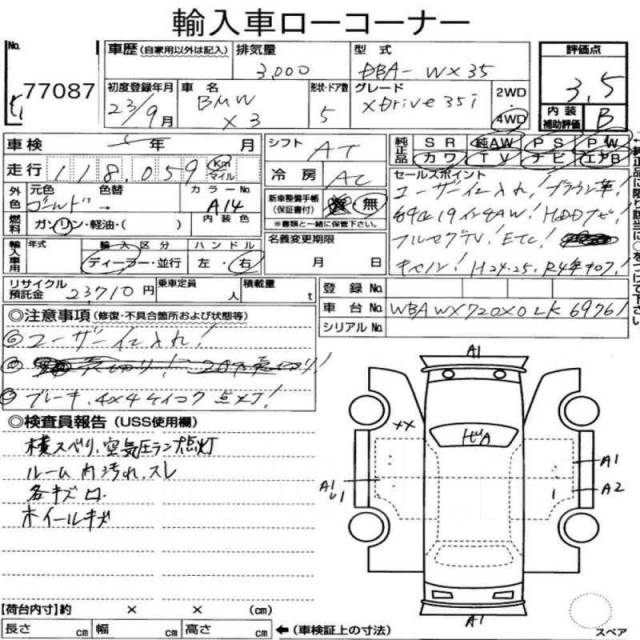 輸入車ローコーナー
No. 77087
車歴 (自家用以外は記入)
排気量 3,000
型式 DBA-WX35
評価点 3.5
初度登録年月 23/9月
車名 BMW X3
形状・ドア数 5
グレード XDrive35i
2WD 4WD
内装補助評価 B
車検 年 月
シフト AT
純正品 SR 純AW PS PW カワ TV ナビ エアB
走行 118,059 Km マイル
冷房 AC
セールスポイント
ユーザー仕入れ!
外色 元色 ゴールド 色替 カラーNo. A14
新車整備手帳 (保証書付) 無
※書類と一緒に保管下さい。
HDDナビ!
燃料 ガソリン・軽油・( ) 内装色
名義変更期限 月 日
フルセグTV! ETC!
輸入車用 年式 輸入区分 ハンドル ディーラー・並行 左・右
H24.25.
リサイクル預託金 23,710円
乗車定員 人
積載量 t
登録No.
車台No. WBAWX720X0LK69761
シリアルNo.
◎注意事項 (修復・不具合箇所および状態等)
ユーザー仕入れ!
ブレーキ.4x4 点灯!
◎検査員報告 (USS使用欄)
横スベリ.空気圧ランプ点灯
ルーム内汚れ.スレ
各キズ
ホイールキズ
A1
XX
A1
A2
A1
A1
スペア
【荷台内寸】約 × × (cm)
長さ cm 幅 cm 高さ cm ←(車検証上の寸法)